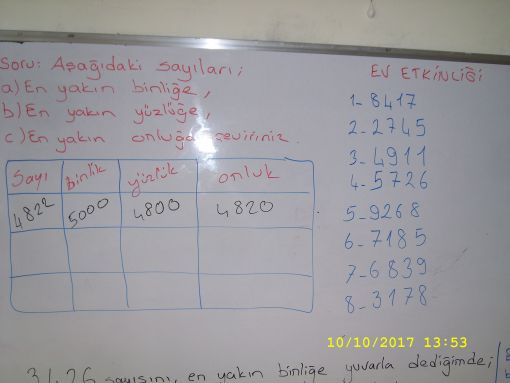 Soru: Aşağıdaki sayıları;
a) En yakın binliğe,
b) En yakın yüzlüğe,
c) En yakın onluğa çeviriniz.
Sayı binlik yüzlük onluk
4822 5000 4800 4820
EV ETKİNLİĞİ
1-8417
2-2745
3-4911
4-5726
5-9268
6-7185
7-6839
8-3178
10/10/2017 13:53
3426 sayısını, en yakın binliğe yuvarla dediğimde;